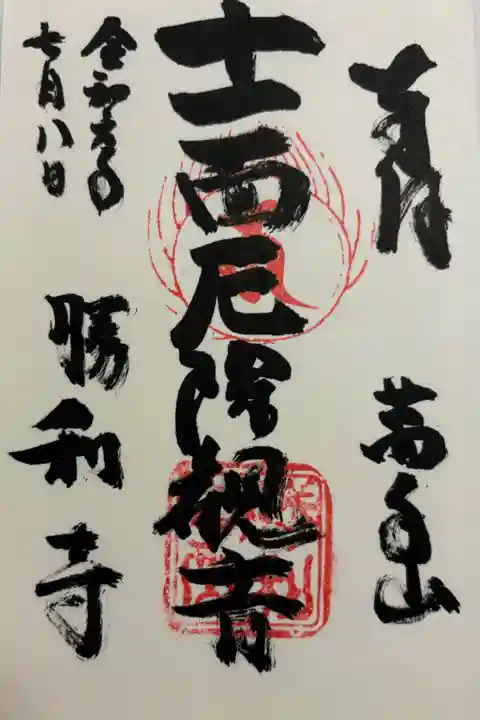 奉拝
萬年山
十一面厄除観音
令和年
七月八日
勝利寺